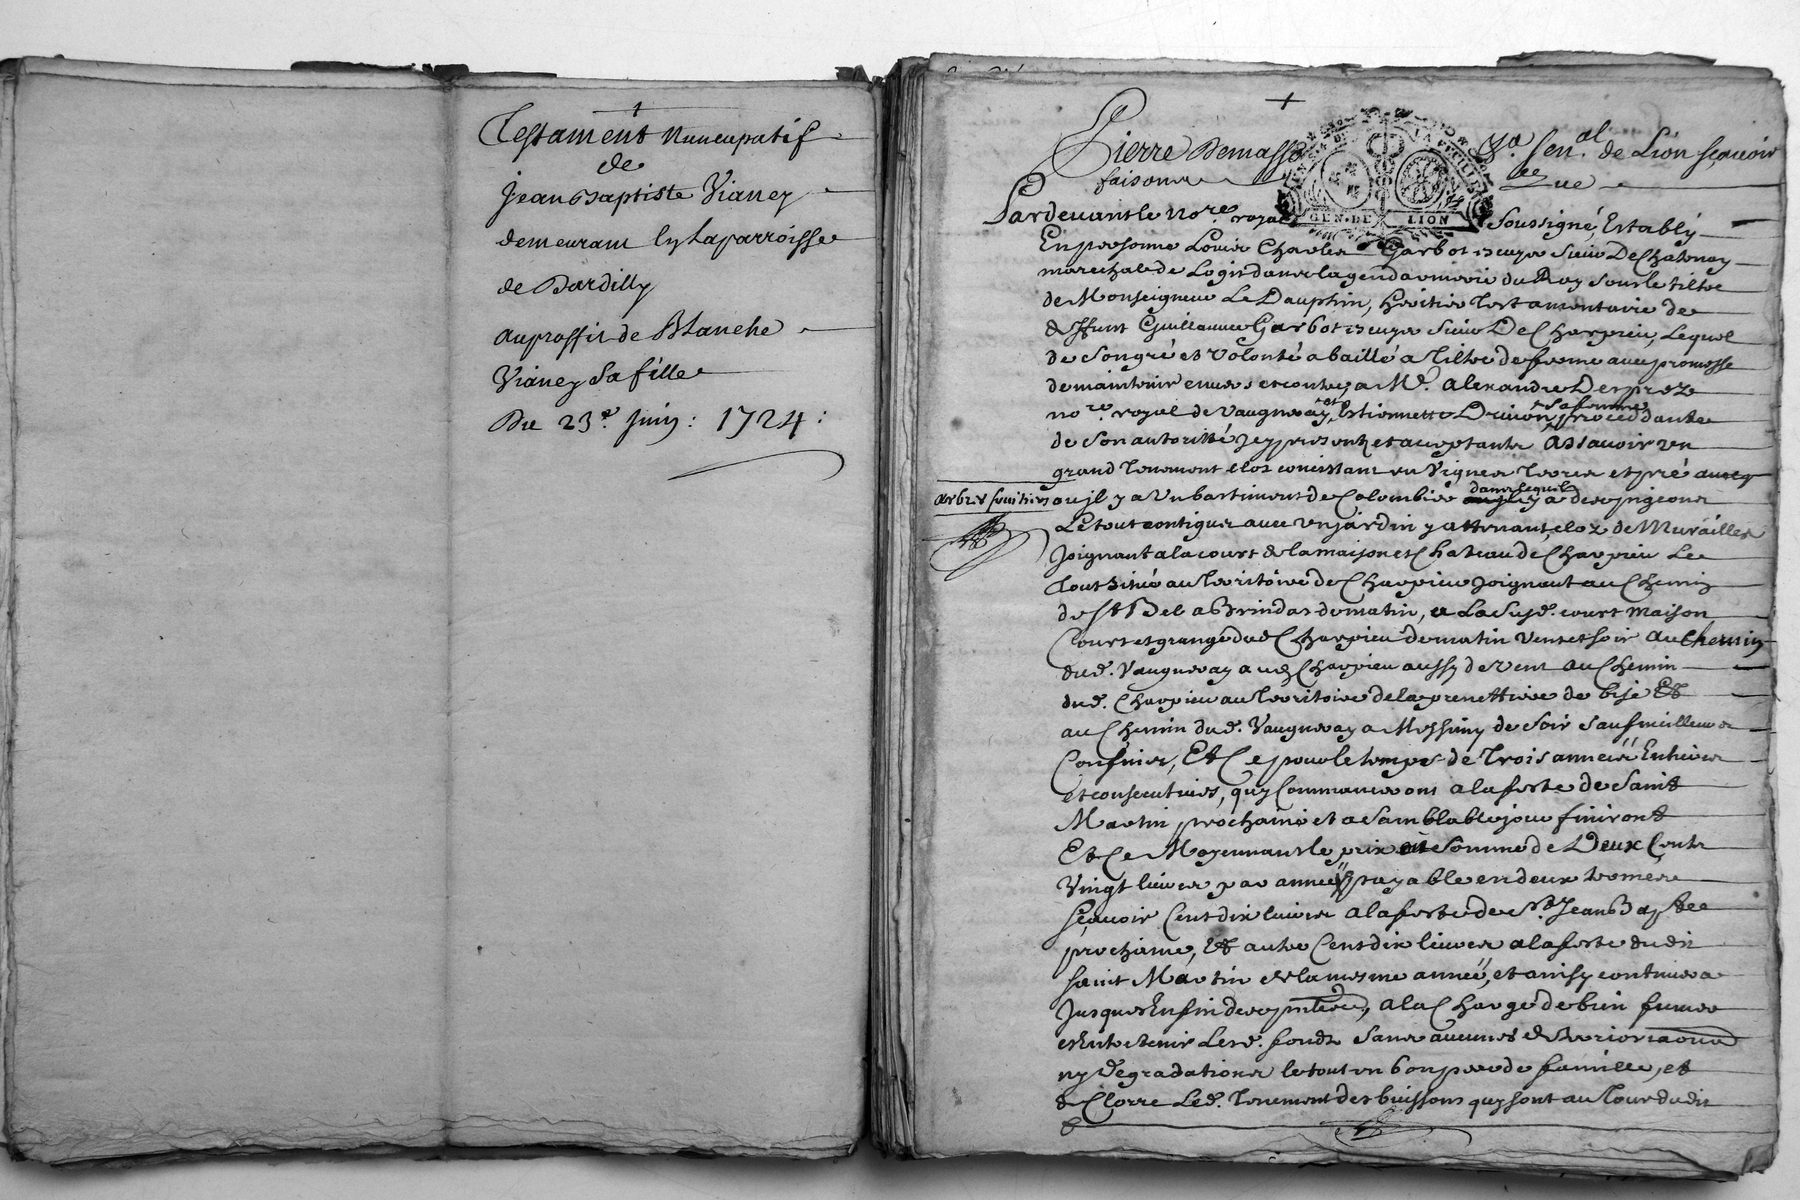 Testament Nuncupatif
de
Jean Baptiste Vianey
demeurant en la parroisse
de Dardilly
au proffit de Blanche
Vianey sa fille
Du 23e. Juin : 1724 :
Pierre Demasso
Sen.al de Lion scavoir
faisons
que
GEN. DE LION
Pardevant le no.re royal soussigné, Estably
En personne Louis Charles Garbot Escuyer Sieur De Chatenay
marechal de Logis dans la gendarmerie du Roy sous le tiltre
de Monseigneur Le Dauphin, heritier testamentaire de
deffunt Guillaume Garbot Escuyer Sieur De Charpieu, Lequel
de son gré et volonté a baillé a tiltre de ferme avec promesse
de maintenir envers et contre a Me. Alexandre Desproze
no.re royal de Vaugneray et Estiennette sa femme procedante
de son autorité icy presents et acceptants Assavoir un
grand tenement clos consistant en Vignes terres et pré avecq
arbres fruitiers
ou il y a un bastiment de Colombier dans lequel y a des pigeons
Le tout contigus avec un jardin y attenant, cloz de Murailles
Joignant a la court de la maison et Chateau de Charpieu Le
tout Situé au territoire de Charpieu joignant au Chemin
de St Bel a Brindas de matin, a La Susd. court maison
Court et grange dud Charpieu de matin vent et soir au Chemin
dud. Vaugneray aud Charpieu aussy de vent au Chemin
dud. Charpieu au territoire de la de bize Et
au Chemin dud. Vaugneray a Messimy de Soir sauf meilleures
Confins, Et Ce pour le temps de trois années Entieres
et consecutives, quy Commanceront a la feste de Saint
Martin prochaine et a Samblable jour finiront
Et Ce Moyennant le prix et Somme de Deux Cents
Vingt livres par année payable en deux termes
Sçavoir Cent dix livres a la feste de St. Jean Baptiste
prochaine, Et autre Cent dix livres a la feste du dit
Saint Martin de la mesme année, et ainsy continuera
Jusques En fin desd. a la Charge de bien fumer
et Entretenir Lesd. fonds Sans aucunes
ny degradations le tout en bon pere de famille, et
de Clorre Led. tenement des buissons quy sont au tour dudit